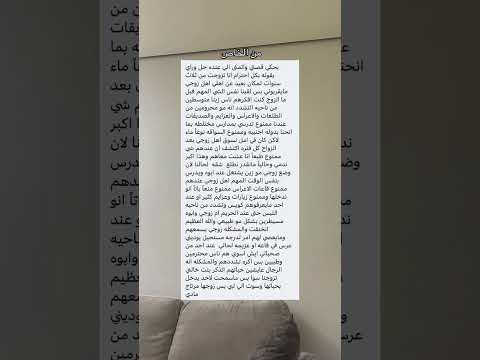 من الخاص
بحكي قصتي واتمنى الي عنده حل وراي
يقوله بكل احترام انا تزوجت من ثلاث
سنوات لمكان بعيد عن اهلي اهل زوجي
مايقربوني بس لقينا نفس الشي المهم قبل
ما اتزوج كنت افكرهم ناس زينا متوسطين
من ناحيه التشدد انه مو محرومين من
الطلعات والاعراس والعزايم والصديقات
عندنا ممنوع تدرسي بمدارس مختلطه بما
انحنا بدوله اجنبيه وممنوع السواقه نوعاً ماء
لاكن كان في امل نسوق اهل زوجي بعد
الزواج كل فتره اكتشف ان عندهم شي
ممنوع طبعا انا عشت معاهم وهذا اكبر
ندمي وحالياً مانقدر نطلع شقه لحالنا لان
وضع زوجي مو زين يشتغل عند ابوه ويدرس
بنفس الوقت المهم اهل زوجي عندهم
ممنوع قاعات الاعراس ممنوع منعاً باتاً انو
ندخلها وممنوع زيارات وعزايم كثير او عند
احد مايعرفوهم كويس وتشدد من ناحيه
اللبس حتى عند الحريم ام زوجي وابوه
مسيطرين بشكل مو طبيعي والله العظيم
اختنقت والمشكله زوجي يسمعهم
ومايعصي لهم امر لدرجه مستحيل يوديني
عرس في قاعه او عزيمه لحالي عند احد من
صحباتي ايش اسوي هم ناس محترمين
وطيبين بس اكره تشددهم والمشكله انه
الرجال عايشين حياتهم اتذكر بنت خالتي
تزوجنا سوا بس ماسمحت لاحد يدخل
بحياتها وسوت الي تبي بس زوجها مرتاح
مادي